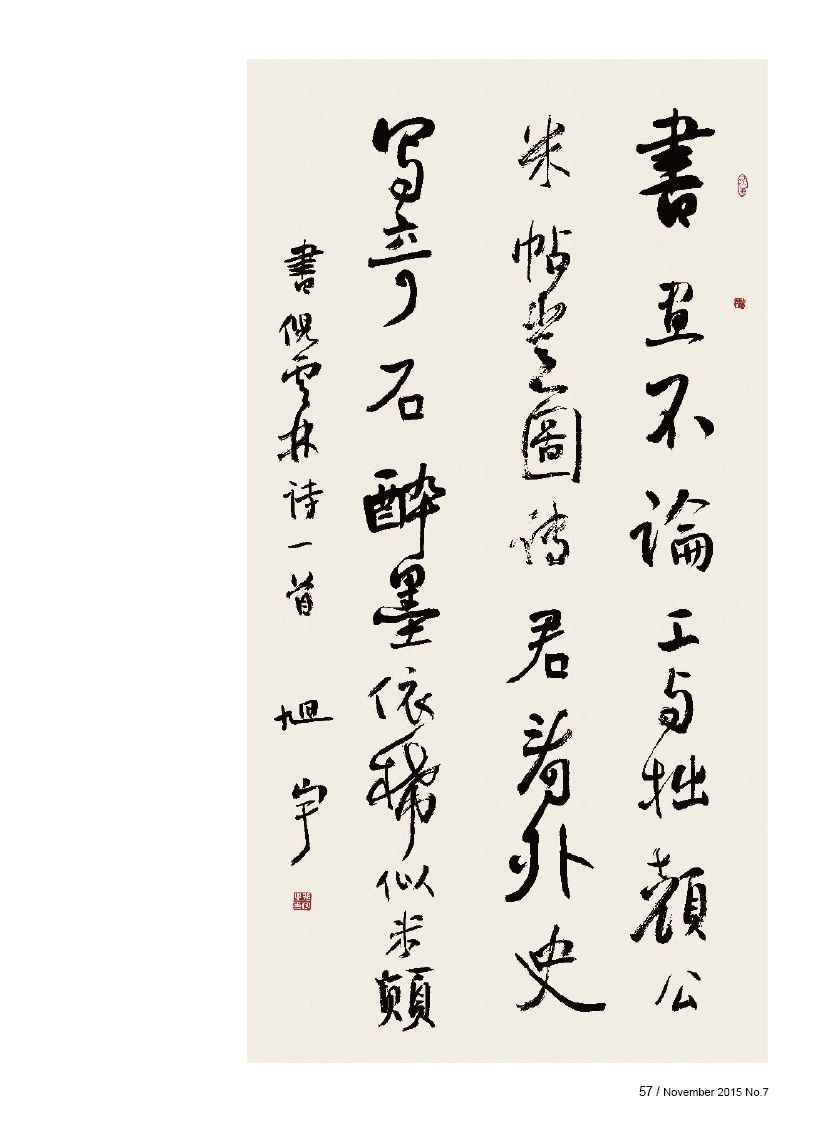 書畫不論工与拙顔公
米帖豈圖傳君看外史
写奇石醉墨依稀似米顛
書倪雲林诗一首 旭宇
57 / November 2015 No.7